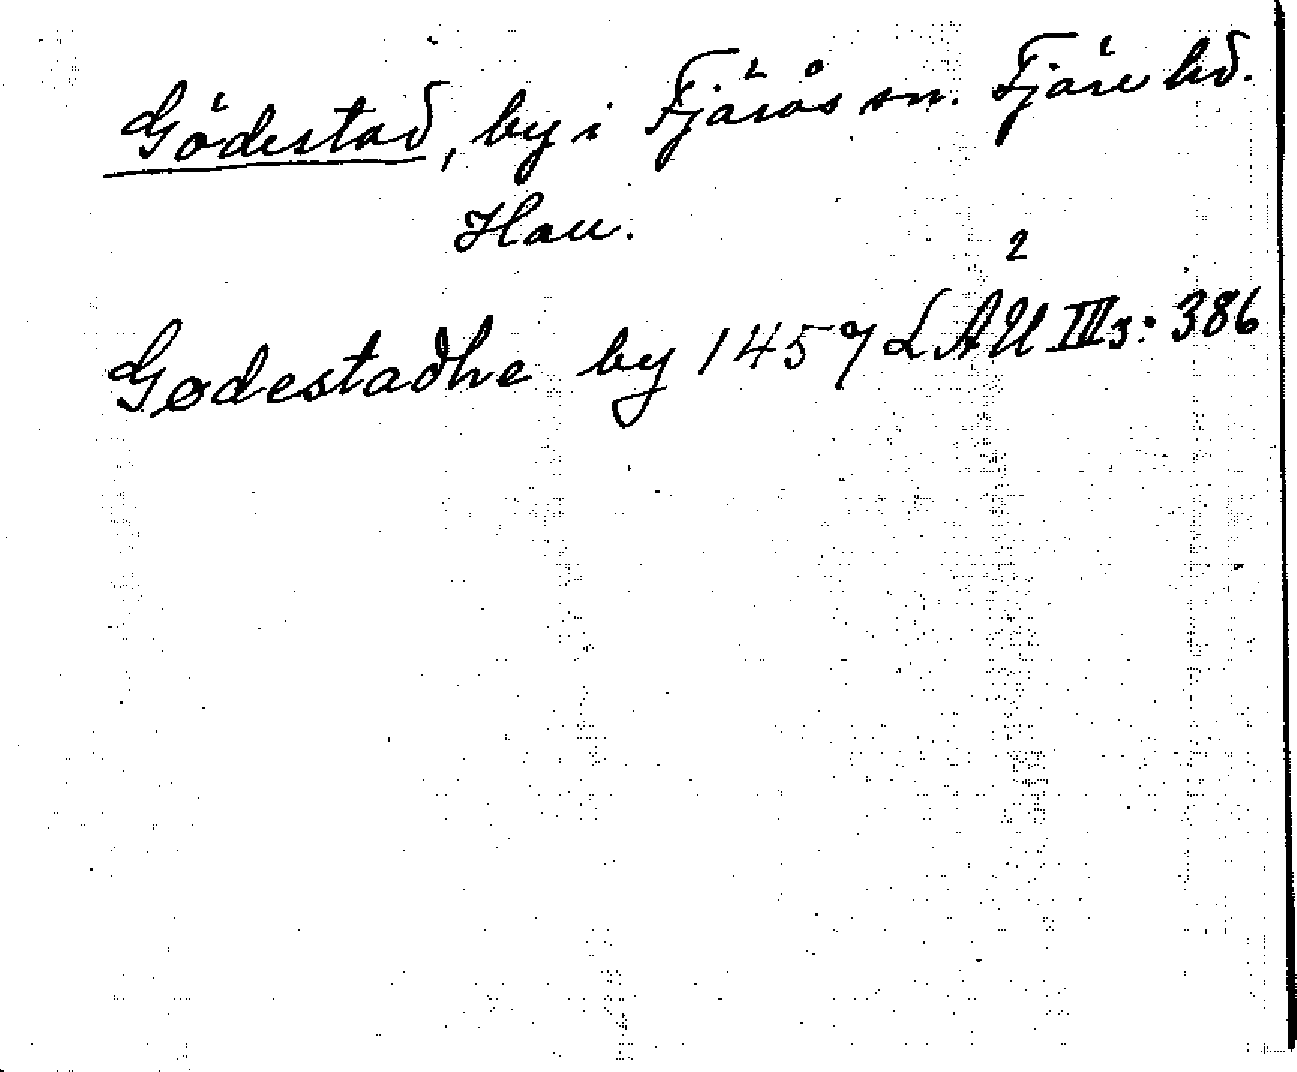 Gödestad, by i Fjärås sn. Fjäre hd.
Hall.
Gødestadhe by 1457 LAU² III s: 386